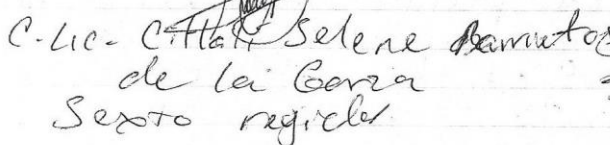 C. Lic. Citlali Selene Barrientos
de la Garza
Sexto regidor